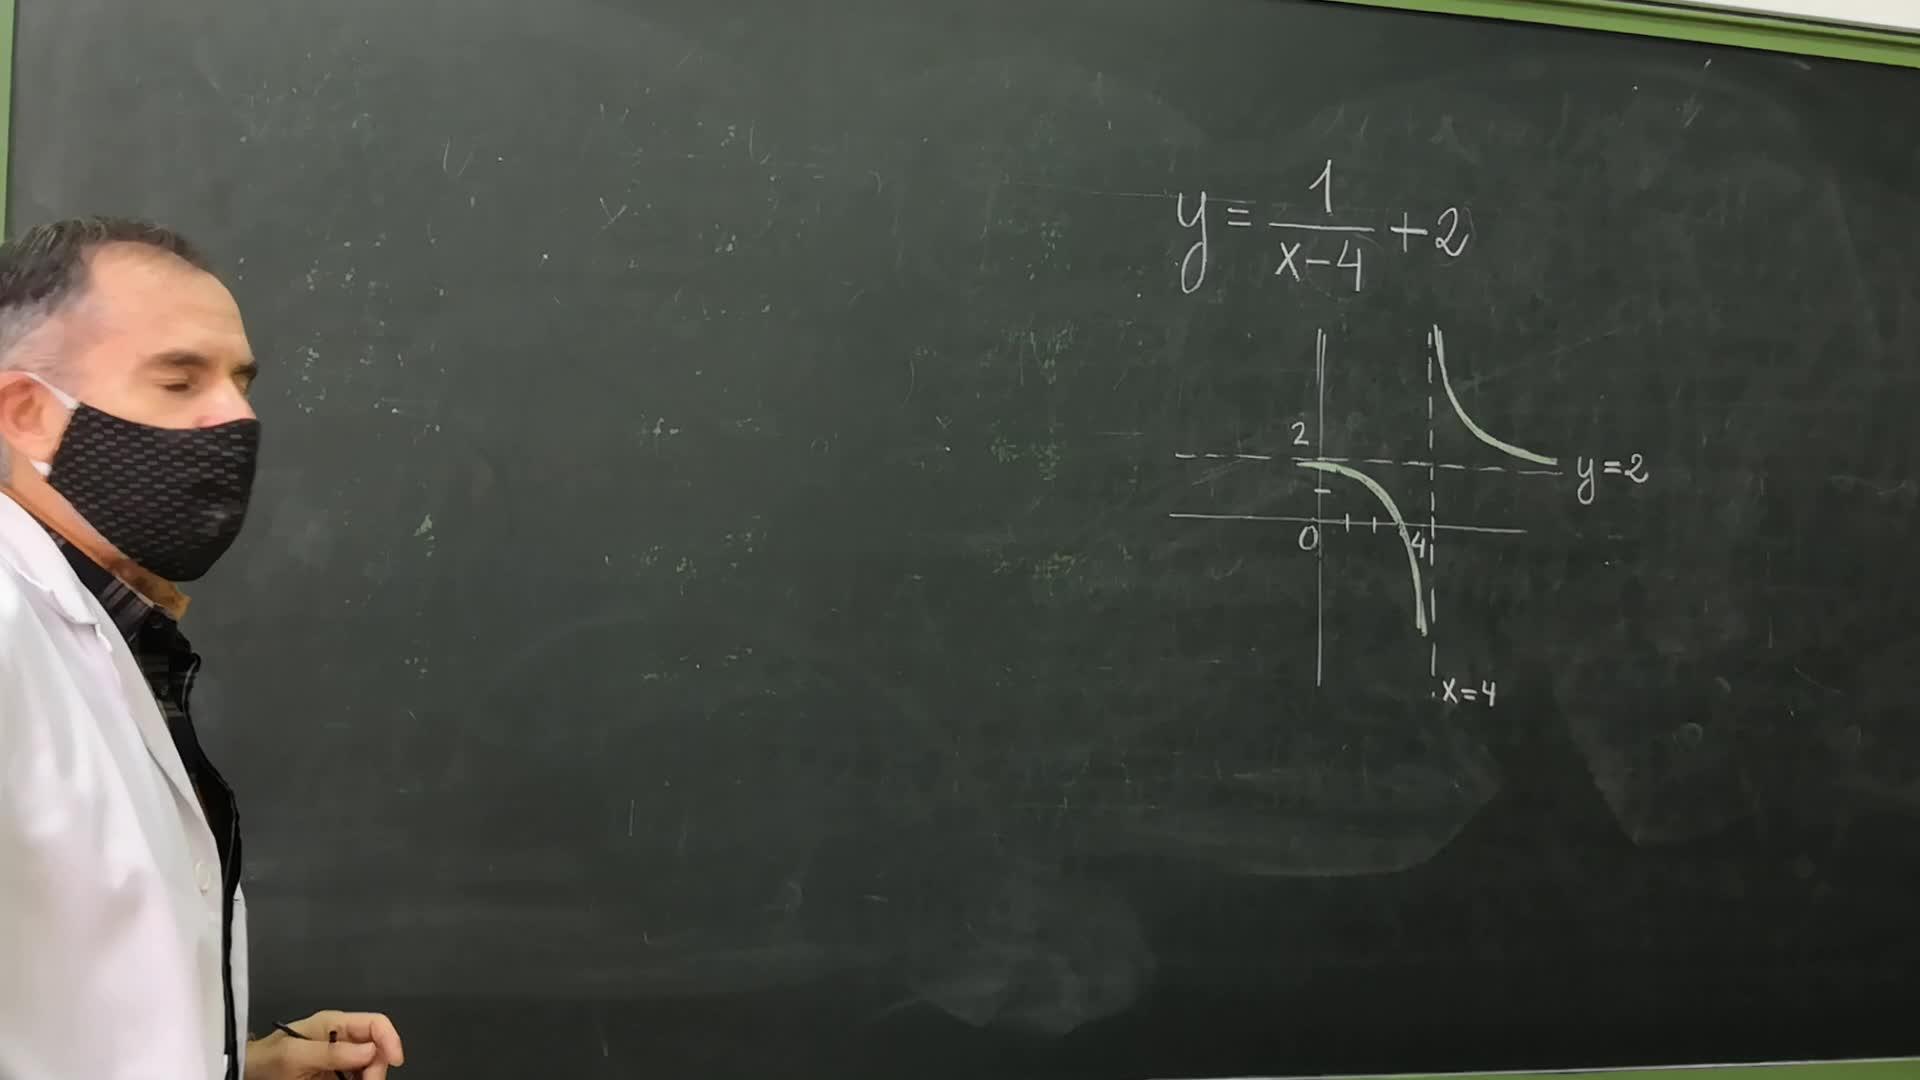 y = 1/(x-4) + 2
2
y=2
0
4
x=4